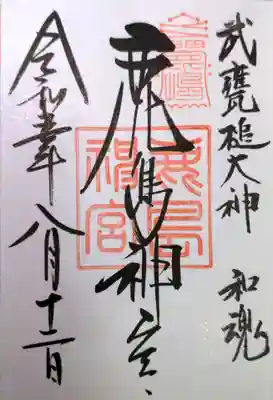 武甕槌大神 和魂
鹿島神宮
鹿島
神宮
令和 年 八月十二日